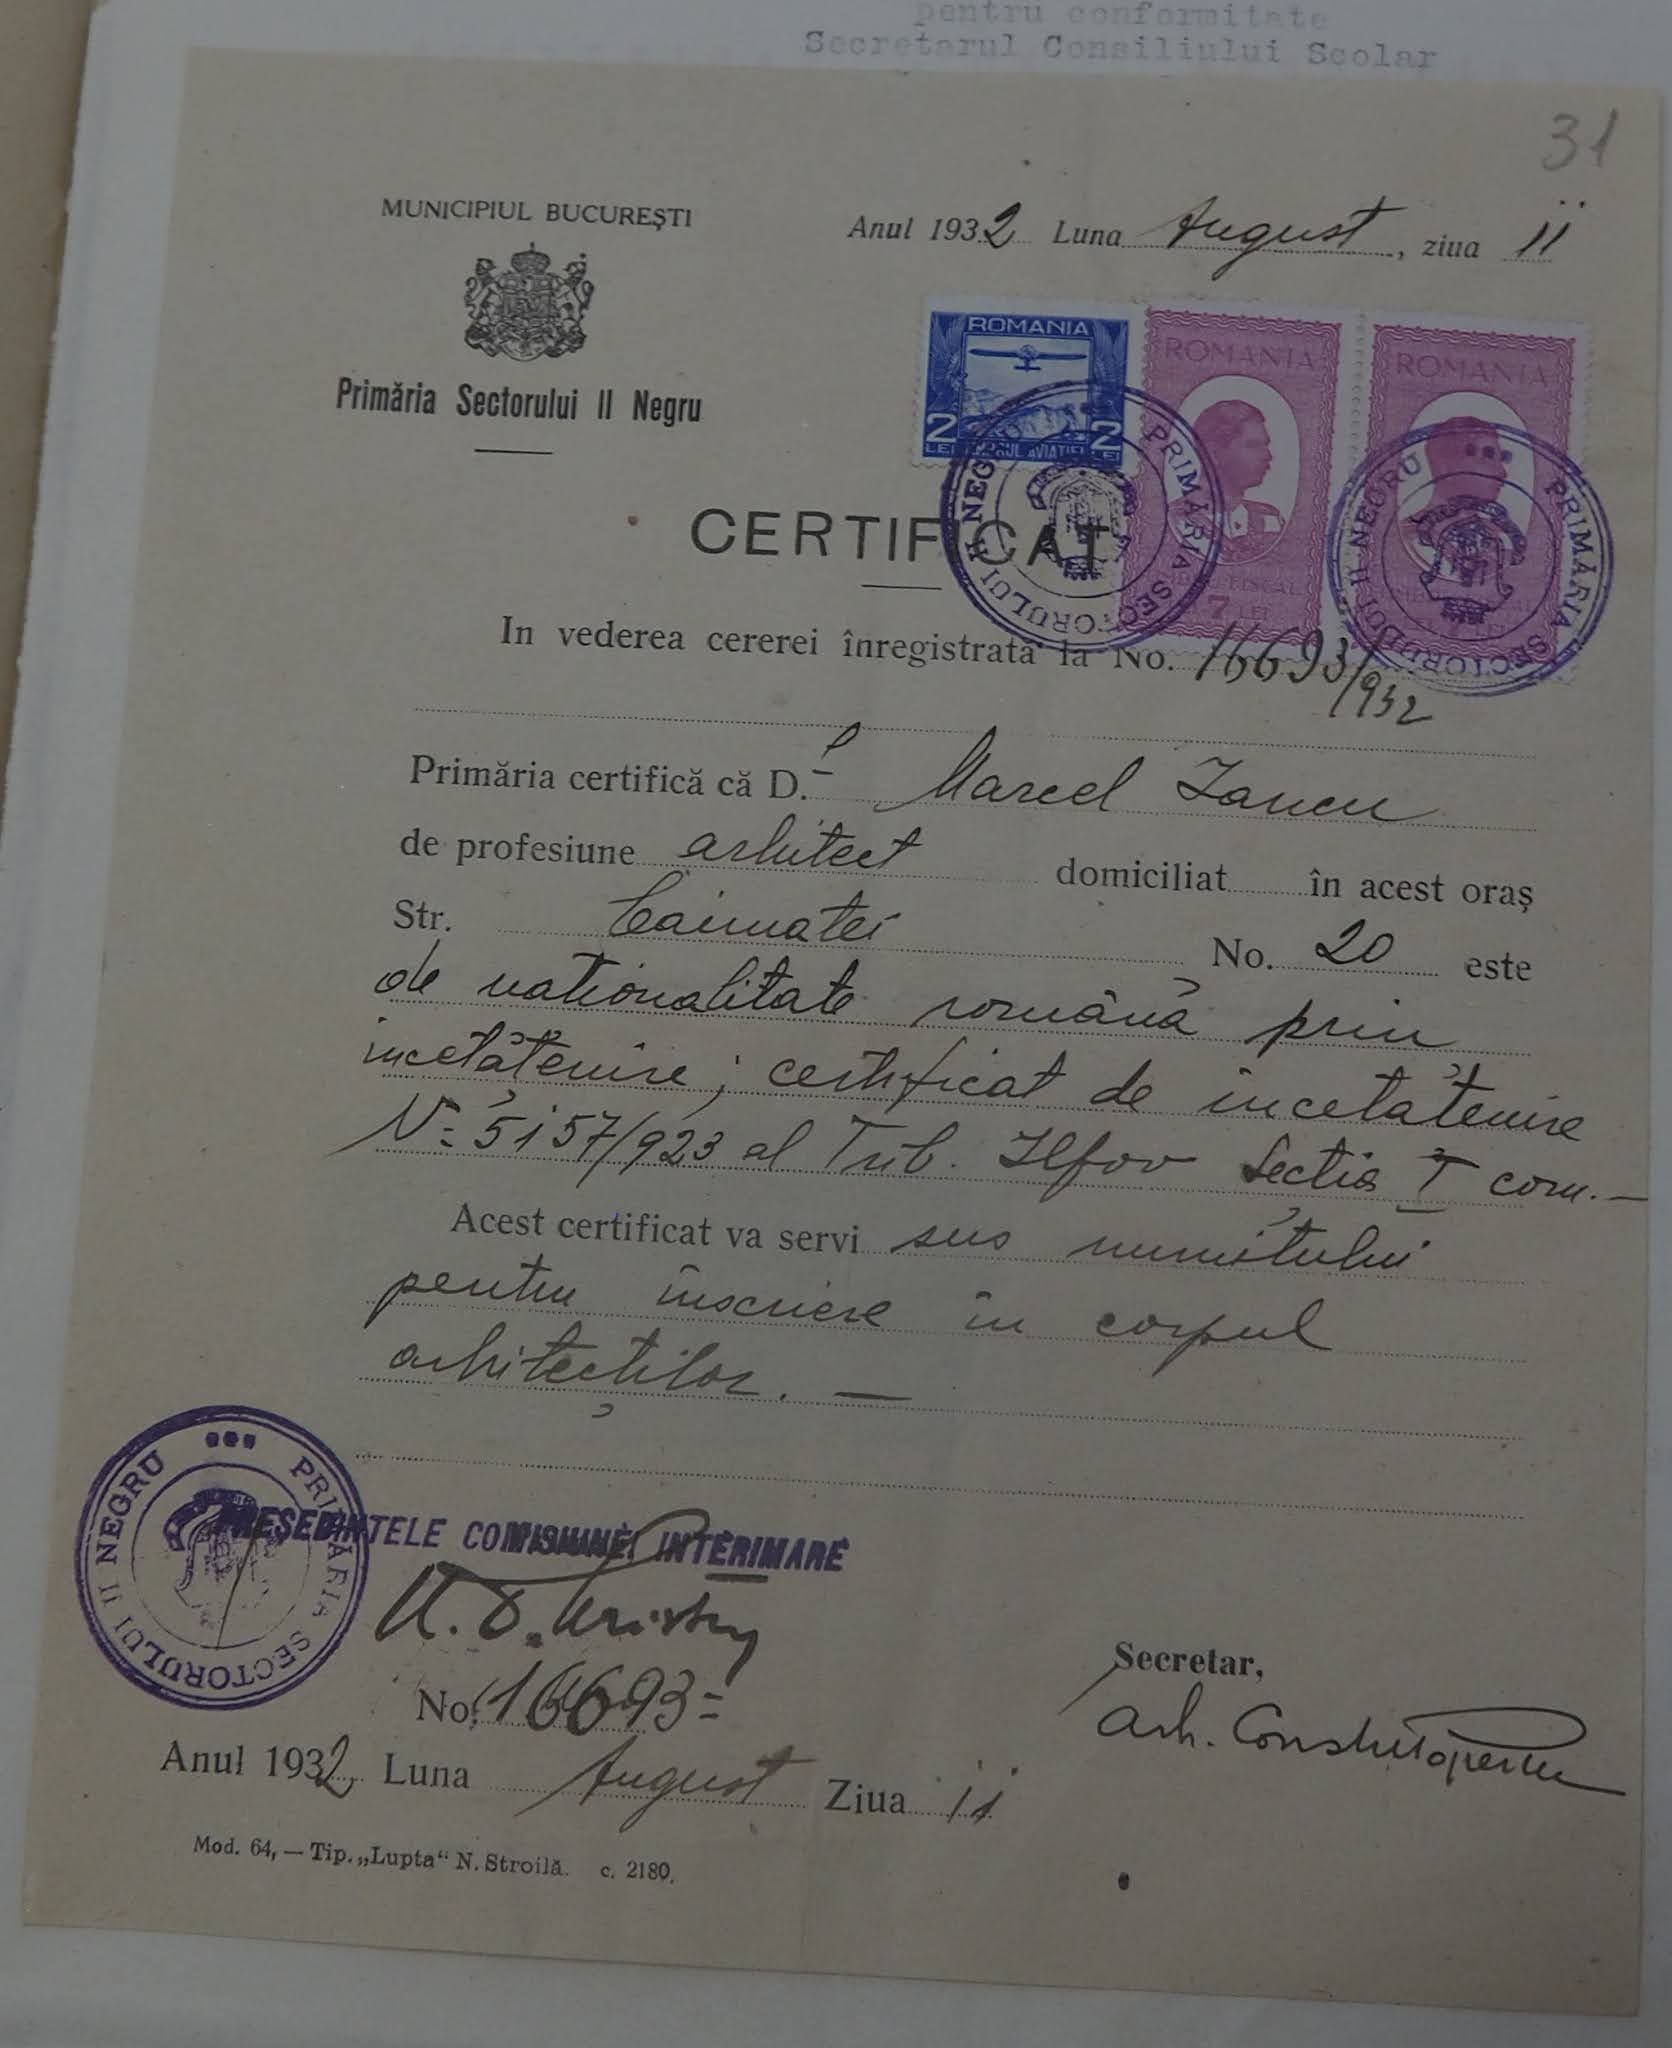 pentru conformitate
Secretarul Consiliului Scolar
31
MUNICIPIUL BUCUREȘTI
Anul 1932 Luna August, ziua 11
Primăria Sectorului II Negru
ROMANIA
2 2
LEI TIMBRUL AVIAȚIEI LEI
ROMANIA
FISCAL
7 LEI
ROMANIA
PRIMĂRIA SECTORULUI II NEGRU
PRIMĂRIA SECTORULUI II NEGRU
CERTIFICAT
In vederea cererei înregistrată la No. 16693/932
Primăria certifică că D.l Marcel Iancu
de profesiune arhitect domiciliat în acest oraș
Str. Caimatei No. 20 este
de naționalitate română prin
incetățenire; certificat de incetățenire
No 5157/923 al Trib. Ilfov Secția I com.—
Acest certificat va servi sus numitului
pentru înscriere în corpul
arhitecților. —
PRIMĂRIA SECTORULUI II NEGRU
PREȘEDINTELE COMISIUNEI INTERIMARE
No. 16693=
Secretar,
Arh.
Anul 1932 Luna August Ziua 11
Mod. 64, — Tip. „Lupta“ N. Stroilă. c. 2180.